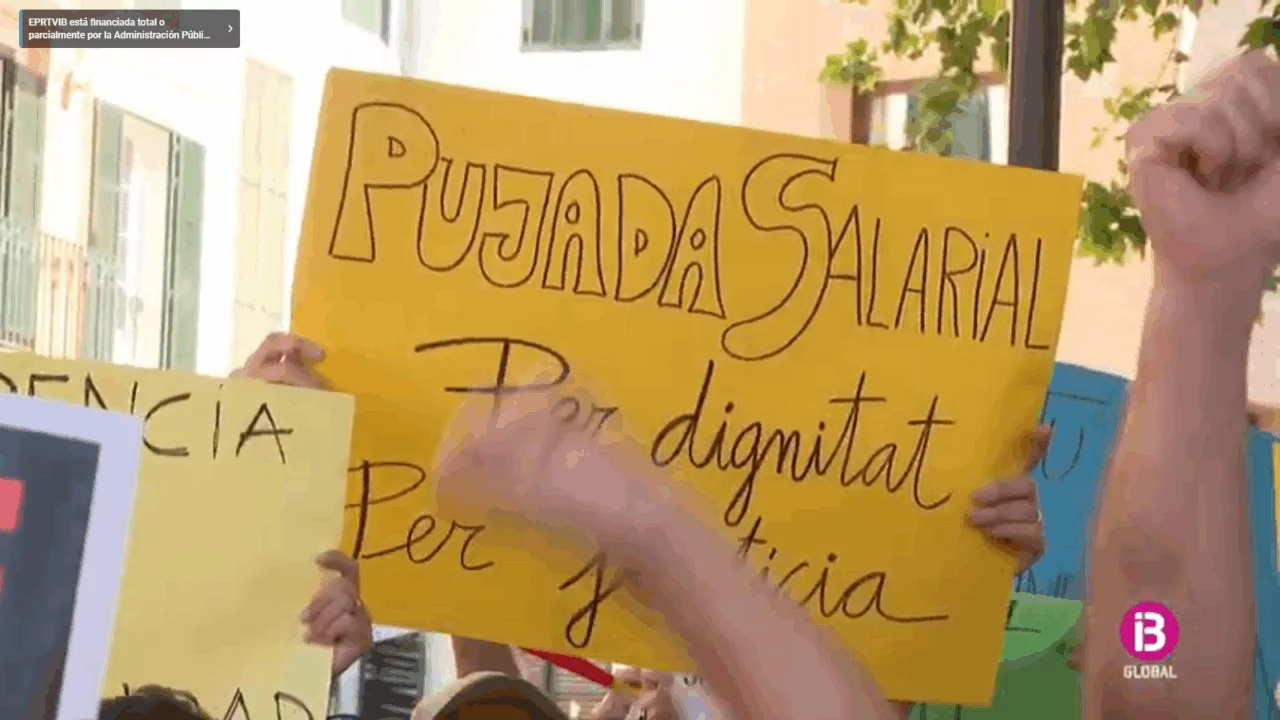 EPRTVIB está financiada total o
parcialmente por la Administración Públi...
PUJADA SALARIAL
Per dignitat
Per
IB
GLOBAL